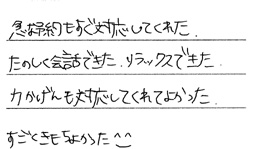 急な予約もすぐ対応してくれた.
たのしく会話できた.リラックスできた.
力かげんも対応してくれてよかった.
すごくきもちよかった^^